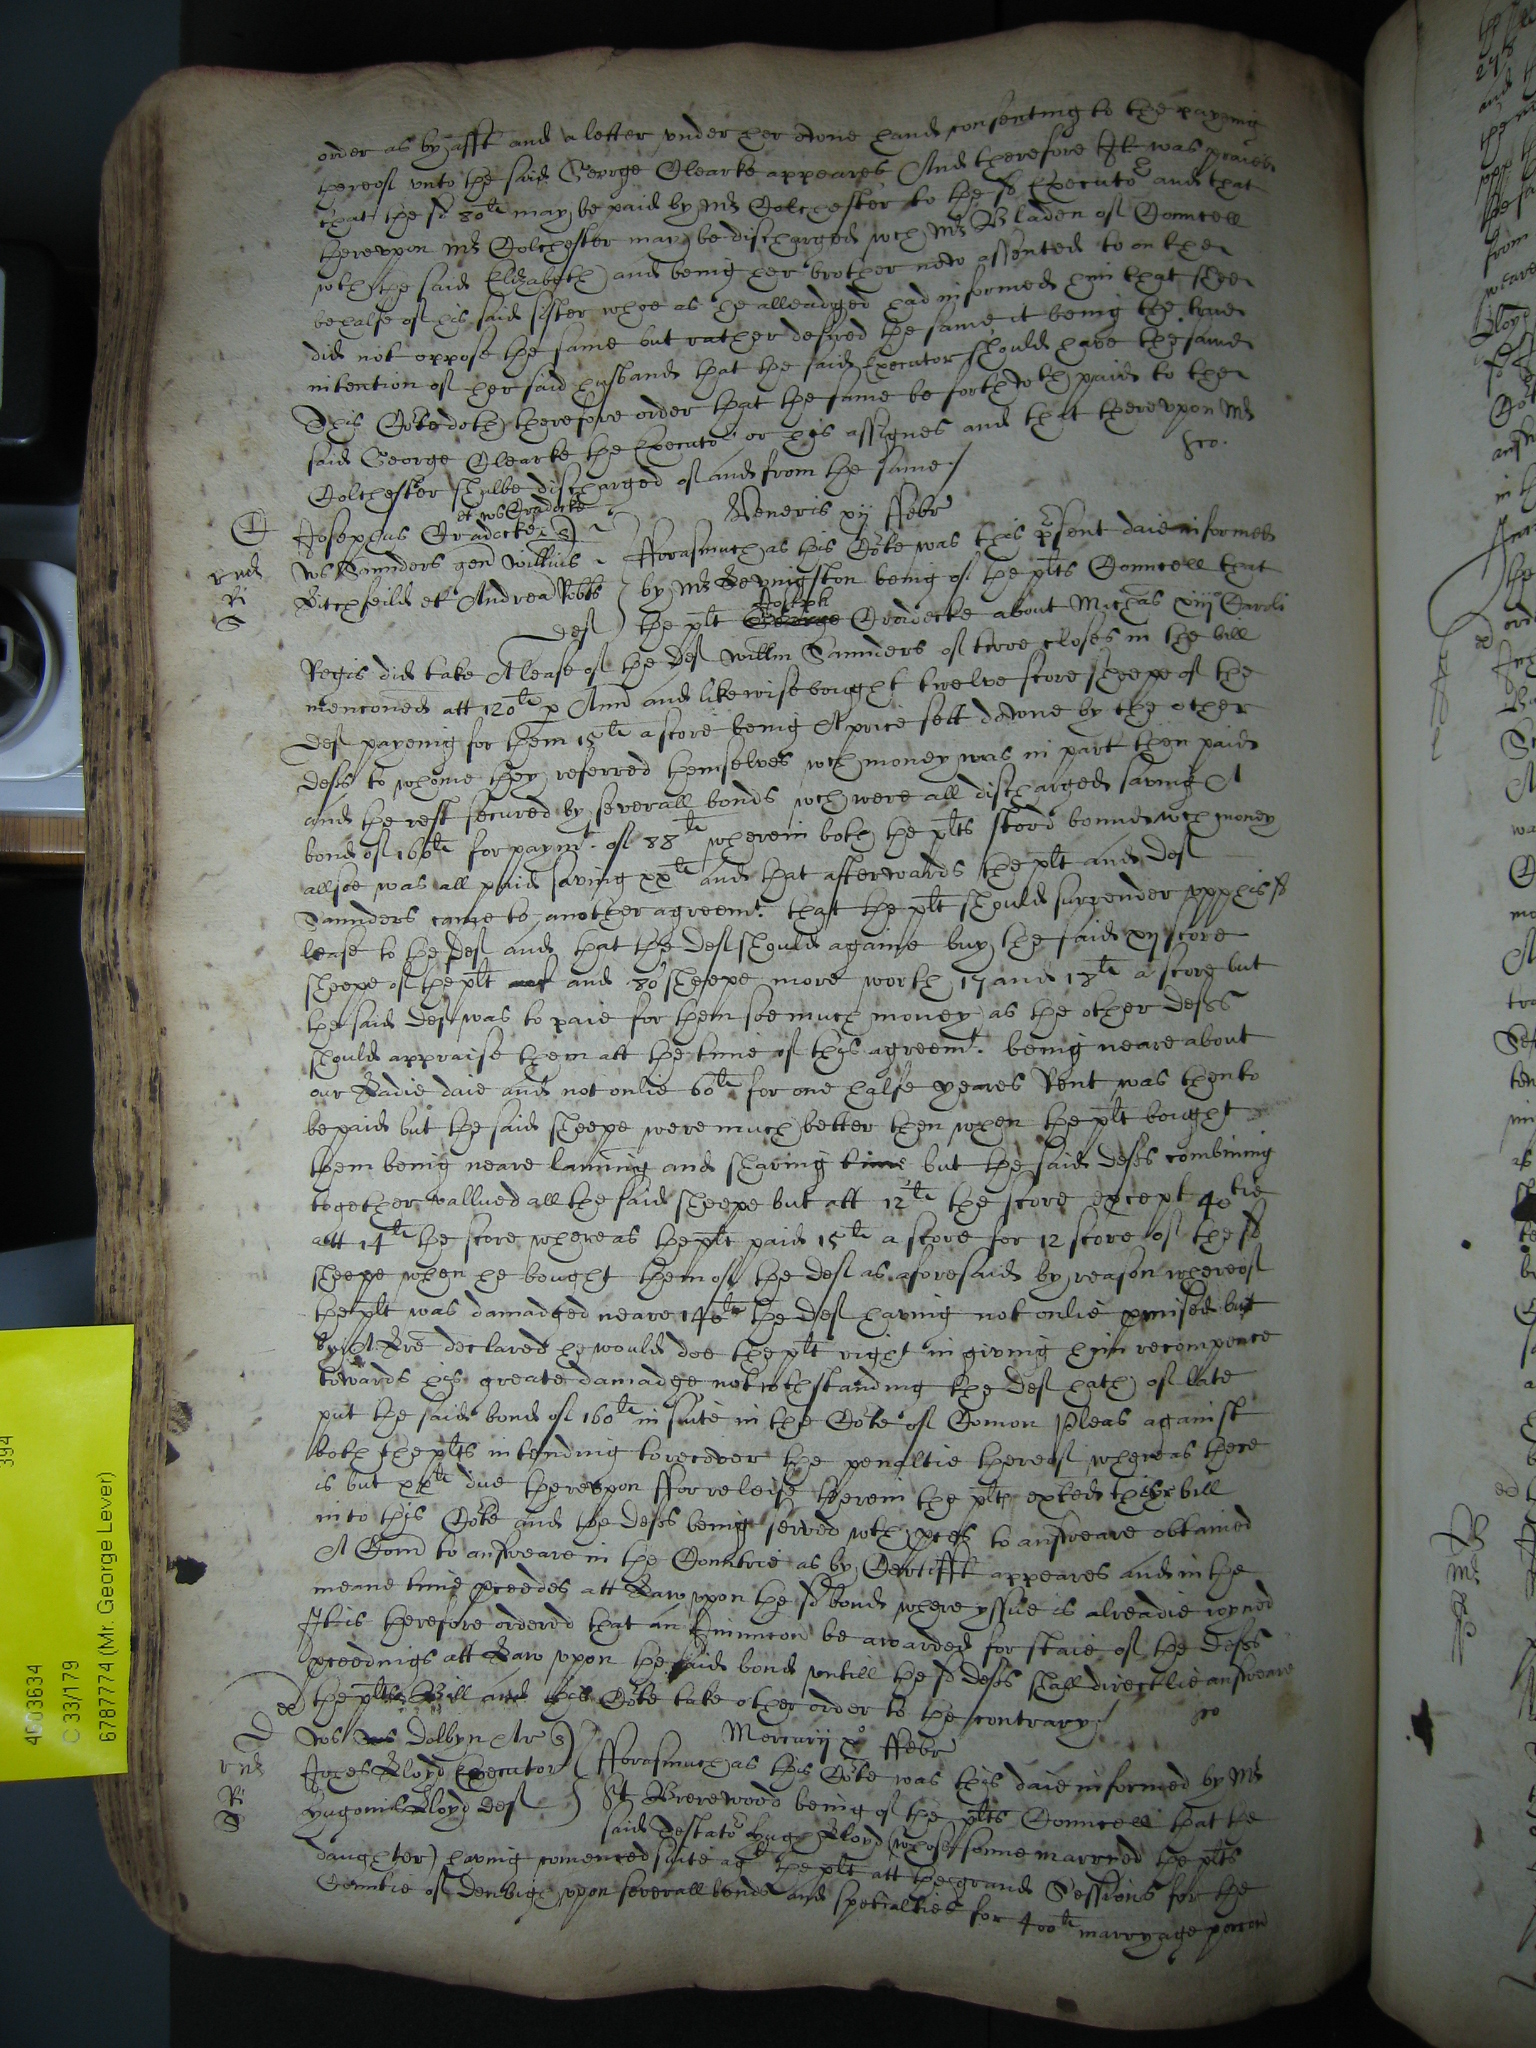 order as by afft and a letter vnder her owne hand consenting to the payeing
thereof vnto the said George Clearke appeares And therefore It was praied
that the sd 80li may be paid by Mr Colchester to the sd Executor and that
therevpon Mr Colchester may be discharged wch Mr Bladen of Councell
wth the said Elizabeth and being her brother now assented to on the
behalfe of his said sister whoe as he alleadged had informed him that shee
did not oppose the same but rather desired the same it being the true
intention of her said husband that the said Executor should have the same
This Cōte doth therefore order that the same be forthwth paid to the
said George Clearke the Executor or his assignes and that therevpon Mr
Colchester shalbe discharged of and from the same /
Veneris xij ffebr
Josephus Cradocke
et ws Cradocke
ws Saunders gen willūs
Fforasmuch as this Cōte was this pñsent daie informed
Litchfeild et Andrea Robts
by Mr Kevinigston being of the plts Councell that
def
the plt George Joseph Cradocke about Michas xiijo Caroli
Regis did take A lease of the def willm Saunders of twoe closes in the bill
menconed att 120li p Ann and likewise bought twelve score sheepe of the
def payeing for them 15li a score being A price sett downe by the other
defts to whome they referred themselves wch money was in part then paid
and the rest secured by severall bonds wch were all discharged saving A
bond of 160li for paymt of 88li wherein both the plts stood bound wch money
allsoe was all paid saving xxli and that afterwards the plt and def
Saunders came to another agreemt that the plt should surrender vpp his sd
lease to the def and that the def should againe buy the said xij score
sheepe of the plt and 80 sheepe more worth 17 and 18li a score but
the said def was to paie for them soe much money as the other defts
should appraise them att the time of this agreemt being neare about
our Ladie daie and not onlie 60li for one halfe yeares Rent was then to
be paid but the said sheepe were much better then when the plt bought
them being neare laming and sharing time but the said defts combining
together vallued all the said sheepe but att 12li the score except 40tie
att 14li the score whereas the plt paid 15li a score for 12 score of the sd
sheepe when he bought them of the def as aforesaid by reason whereof
the plt was damadged neare 140li the def having not onlie pmised but
by A Lre declared he would doe the plt right in giving him recompence
towards his greate damadge notwthstanding the def hath of late
put the said bond of 160li in suite in the Cōte of Comon Pleas against
both the plts intending to recover the penaltie thereof whereas there
is but xxli due therevpon ffor releife herein the plts exhted their bill
in to this Cōte and the defts being served wth pces to answeare obtained
A Com to answeare in the Countrie as by Certifft appeares and in the
meane time pceedes att Law vpon the sd bond where yssue is alreadie ioyned
It is therefore ordered that an Iniunccon be awarded for staie of the defts
pceedings att Law vpon the said bond vntill the sd defts shall directlie answeare
the plts Bill and this Cōte take other order to the contrary /
Mercurij xo ffebr
Ws Dolbyn Ar
Johes Lloyd Executor
Fforasmuch as this Cōte was this daie informed by Mr
Hugonis Lloyd def
St Brerewood being of the plts Councell that the
said Testator Hugh Lloyd (whose sonne marryed the plts
daughter) having comenced suite agt the plt att the grand Sessions for the
Countie of Denbigh vpon severall bonds and specialties for 400li marryage porcon
394
4003634
C 33/179
6787774 (Mr. George Lever)